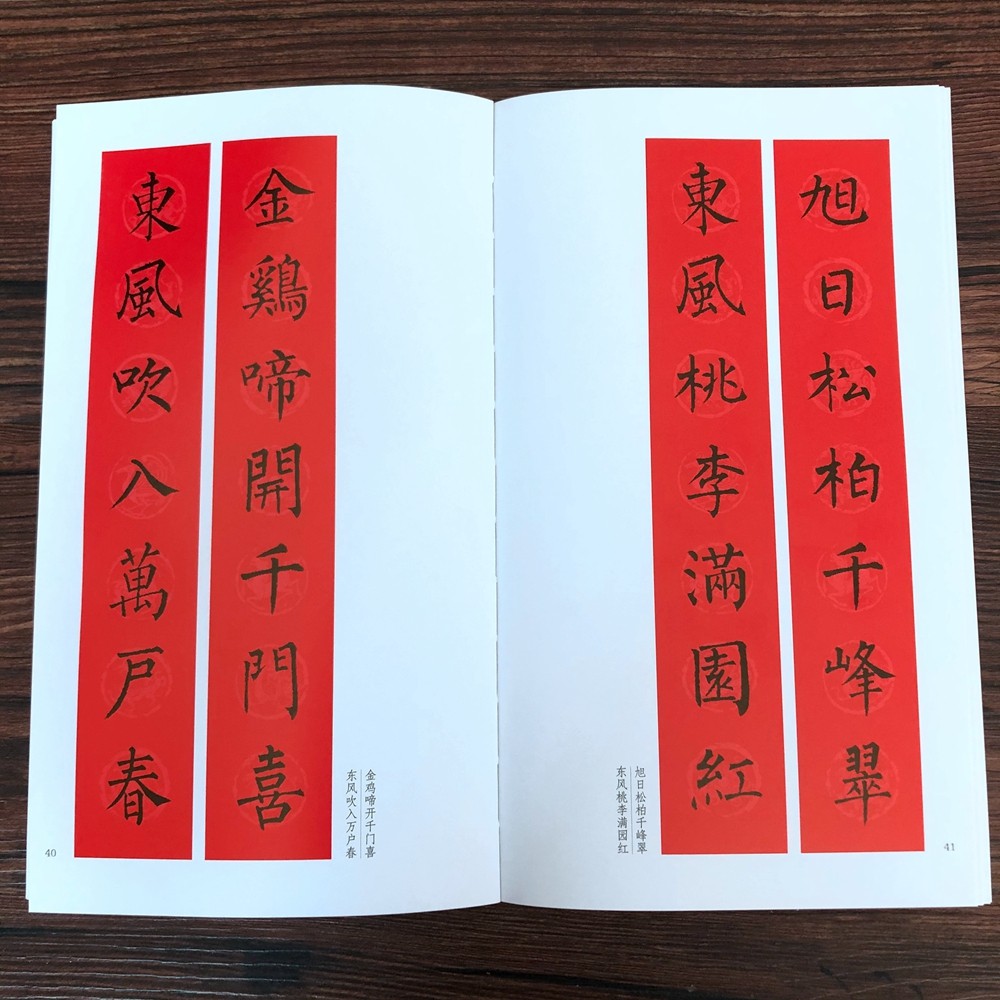 金鷄啼開千門喜
東風吹入萬戸春
金鸡啼开千门喜
东风吹入万户春
40
旭日松柏千峰翠
東風桃李滿園紅
旭日松柏千峰翠
东风桃李满园红
41